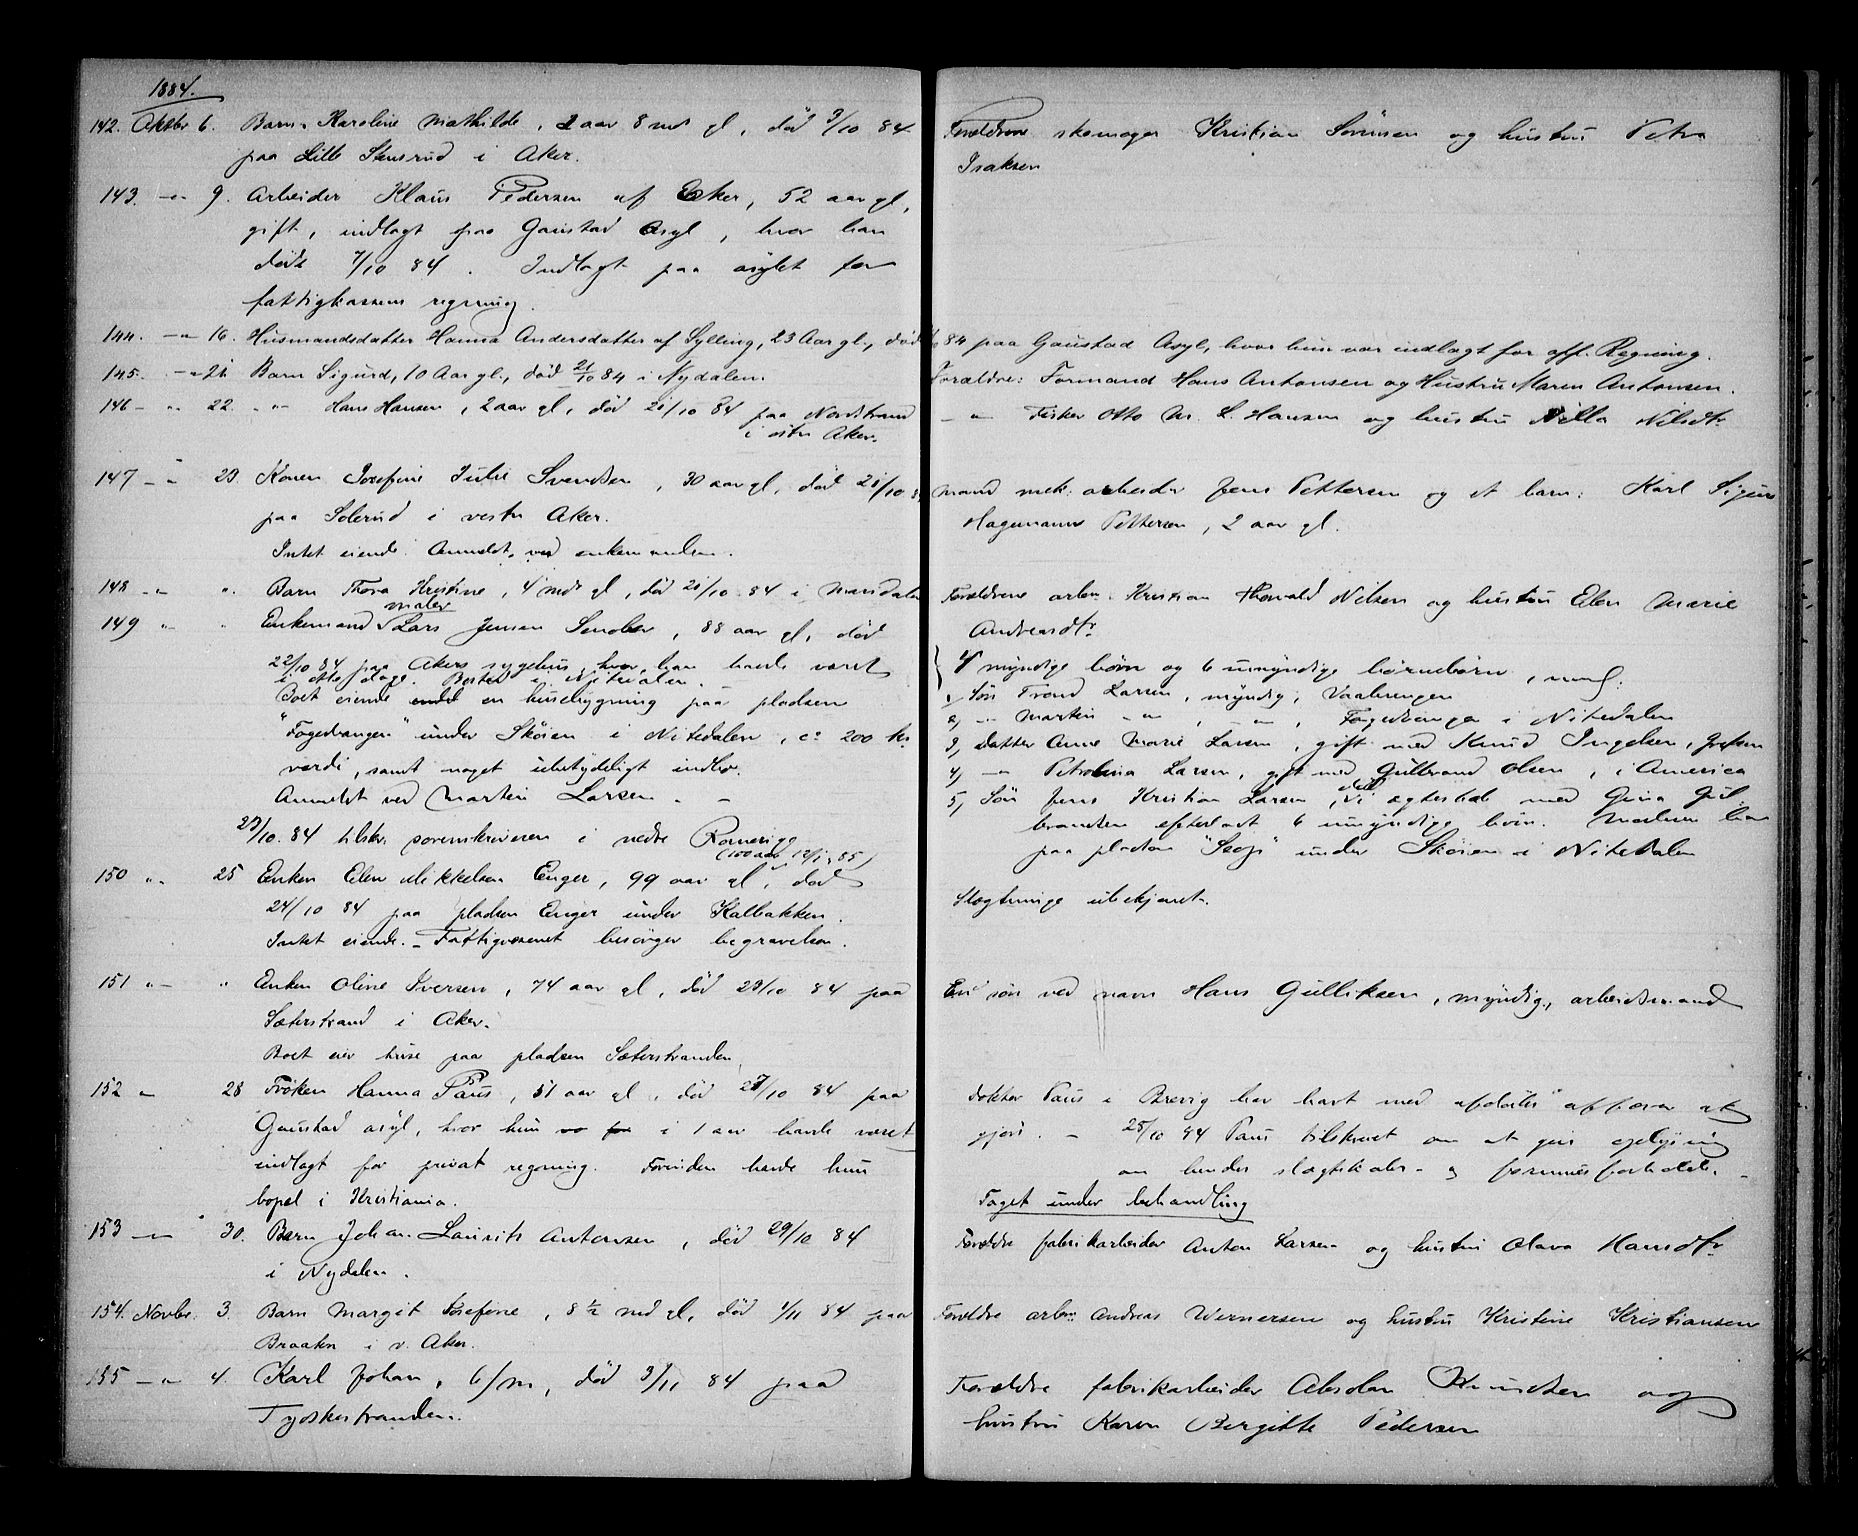 1884.
142. Oktbr 6. Barn Karoline Mathilde, 2 aar 8 md gl, død 3/10 84
paa Lille Stensrud i Aker.
Forældrene skomager Kristian Sørensen og hustru Petra
Isaksen
143. -"- 9. Arbeider Klaus Pedersen af Eker, 52 aar gl,
gift, indlagt paa Gaustad Asyl, hvor han
døde 7/10 84. Indlagt paa asylet for
fattigkassens regning.
144. -"- 16. Husmandsdatter Hanna Andersdatter af Sylling, 23 Aar gl., død
84 paa Gaustad Asyl, hvor hun var indlagt for off. Regning.
145. -"- 21. Barn Sigurd, 10 Aar gl., død 21/10 84 i Nydalen.
Forældre: Formand Hans Antonsen og Hustru Maren Antonsen.
146 - " 22. -"- Hans Hansen, 2 aar gl, død 21/10 84 paa Nordstrand
i østre Aker.
-"- Fisker Otto M. L. Hansen og hustru Nilla Nilsdtr
147 -"- 23. Konen Josefine Julie Svendsen, 30 aar gl, død 21/10 84
paa Solerud i vestre Aker.
Intet eiende. Anmeldt ved enkemanden.
Mand mek. arbeider Jens Pettersen og et barn: Karl Sigurd
Hagemann Pettersen, 2 aar gl.
148 -"- " Barn Thora Kristine, 4 mdr gl, død 21/10 84 i Maridalen
Forældrene arbm. Kristian Thorvald Nilsen og hustru Elen Marie
Andreasdtr
149 " " Enkemand maler Lars Jensen Senober, 88 aar gl, død
22/10 84 paa Akers sygehus, hvor han havde været
i otte dage. Bosted i Nitedalen.
Boet eiende en husebygning paa pladsen
"Fagedvangen" under Skøien i Nitedalen, ca 200 kr.
værdi, samt noget ubetydeligt indbo.
Anmeldt ved Martin Larsen. -
23/10. 84 tilskr. sorenskriveren i nedre Romerige
4 myndige børn og 6 umyndige børnebørn, neml:
1, Søn Trond Larsen, myndig, Vaalerengen
2, -"- Martin -"-, -"-, Fagedvangen i Nitedalen
3, datter Anne Marie Larsen, gift med Knud Ingelsen, Grefsen
4, -"- Petroline Larsen, gift med Gulbrand Olsen, i America
5, Søn Jens Kristian Larsen, død, i ægteskab med Gina Gul-
brandsen efterladt 6 umyndige børn. Moderen bor
paa pladsen under Skøien i Nitedalen
(100 aar 12/1 85)
150 " " 25 Enken Elen Mikkelsen Enger, 99 aar gl, død
24/10 84 paa pladsen Enger under Kalbakken.
Intet eiende. - Fattigvæsenet besørger begravelsen.
Slægtninge ubekjendt.
151 "- " Enken Oline Iversen, 74 aar gl, død 23/10 84 paa
Sæterstrand i Aker.
Boet eier huse paa pladsen Sæterstranden
En søn ved navn Hans Gulliksen, myndig, arbeidsmand
152 " 28 Frøken Hanna Paus, 51 aar gl, død 27/10 84 paa
Gaustad asyl, hvor hun i 1 aar havde været
indlagt for privat regning. Forinden havde hun
bopæl i Kristiania.
Doktor Paus i Brevig har havt med afdødes affærer at
gjøre. - 28/10 84 Paus tilskrevet om at give oplysning
om hendes slægtskabs- og formuesforholde. -
Taget under behandling
153 -"- 30. Barn Johan Laurits Antonsen, død 29/10 84
i Nydalen.
Forældre fabrikarbeider Anton Larsen og hustru Olava Hansdtr
154. Novbr. 3. Barn Margit Josefine, 8 1/2 md gl, død 1/11 84 paa
Braaten i v. Aker.
Forældre arbm. Andreas Wernersen og hustru Kristine Kristiansen
155 -"- 4. Karl Johan, 6/m, død 3/11 84 paa
Tydskestranden.
Forældre fabrikarbeider Absolon Knudsen og
hustru Karen Bergitte Pedersen